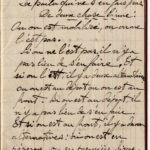 Le poilu qui ne s'en fait pas
De deux choses l'une
Ou on est mobilisé, ou on ne
l'est pas.
Si on ne l'est pas, il n'y a
pas lieu de s'en faire. Et
si on l'est, il y a deux alternatives
ou on est au dépôt ou on est au
front. Si on est au dépôt, il
n'y a pas lieu de s'en faire.
Si on est au front, il y a deux
alternatives : si on est en